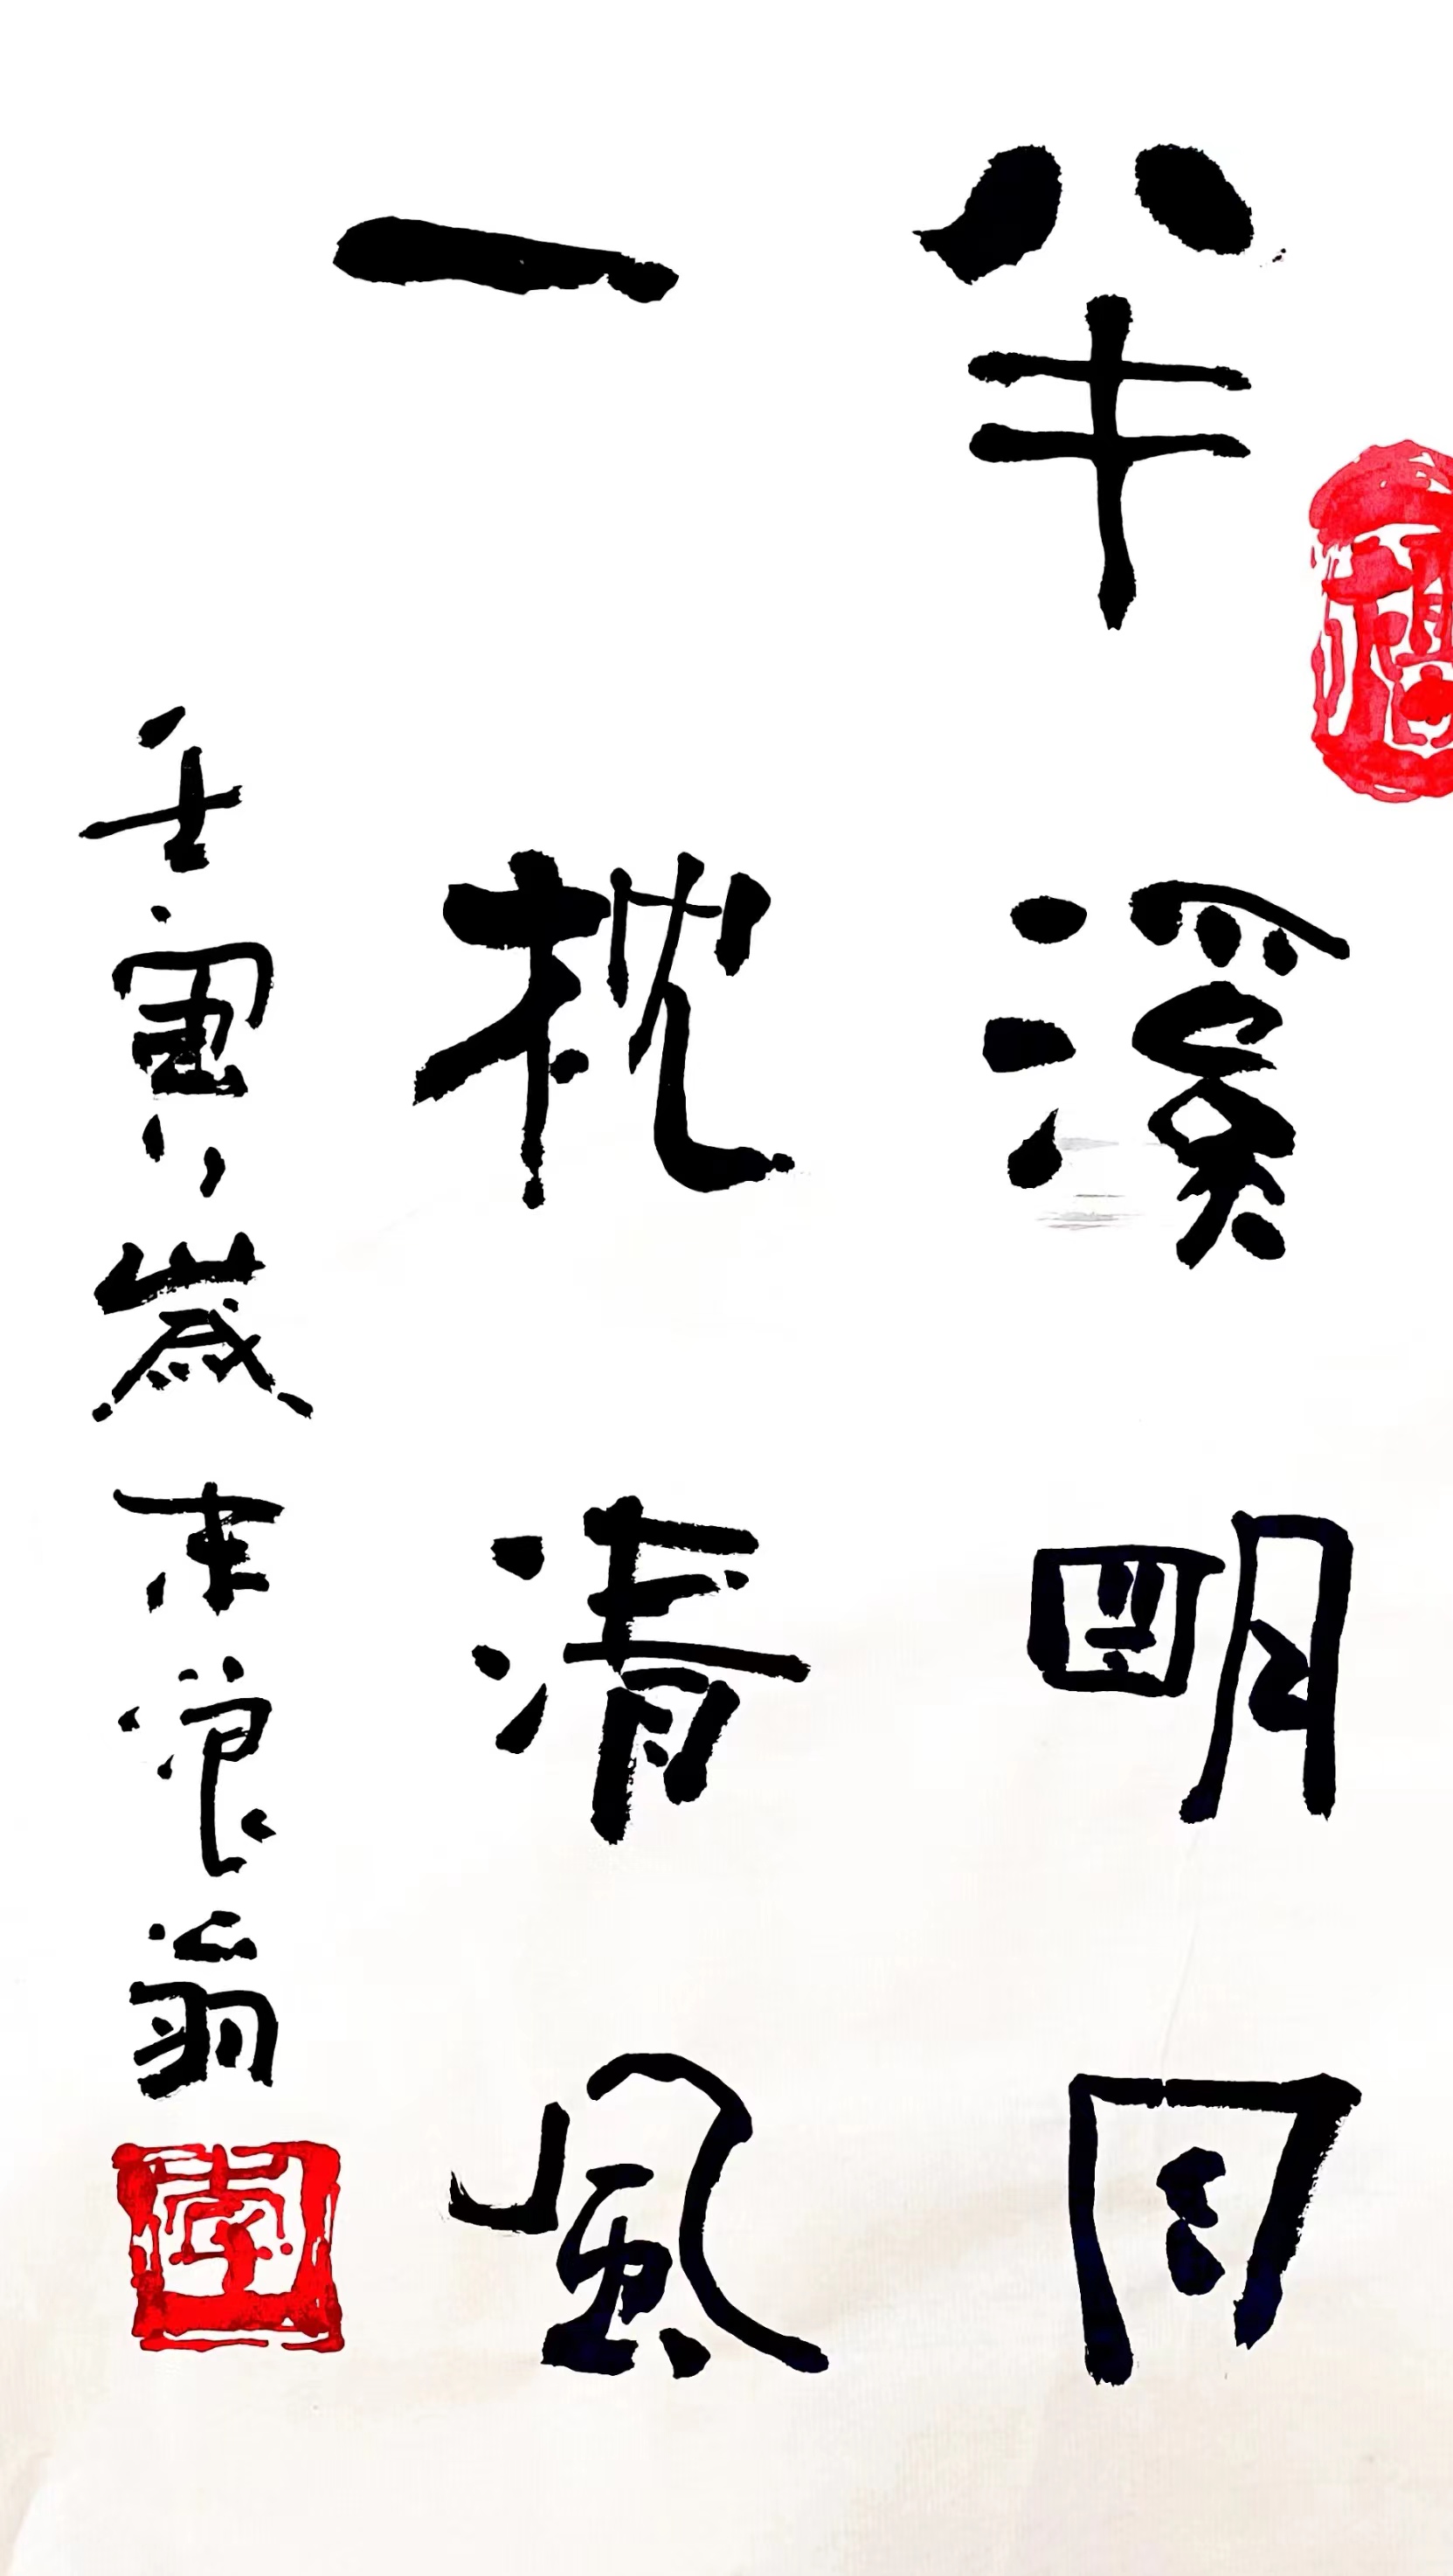 半溪明月
一枕清風
壬寅歲末浪翁
李